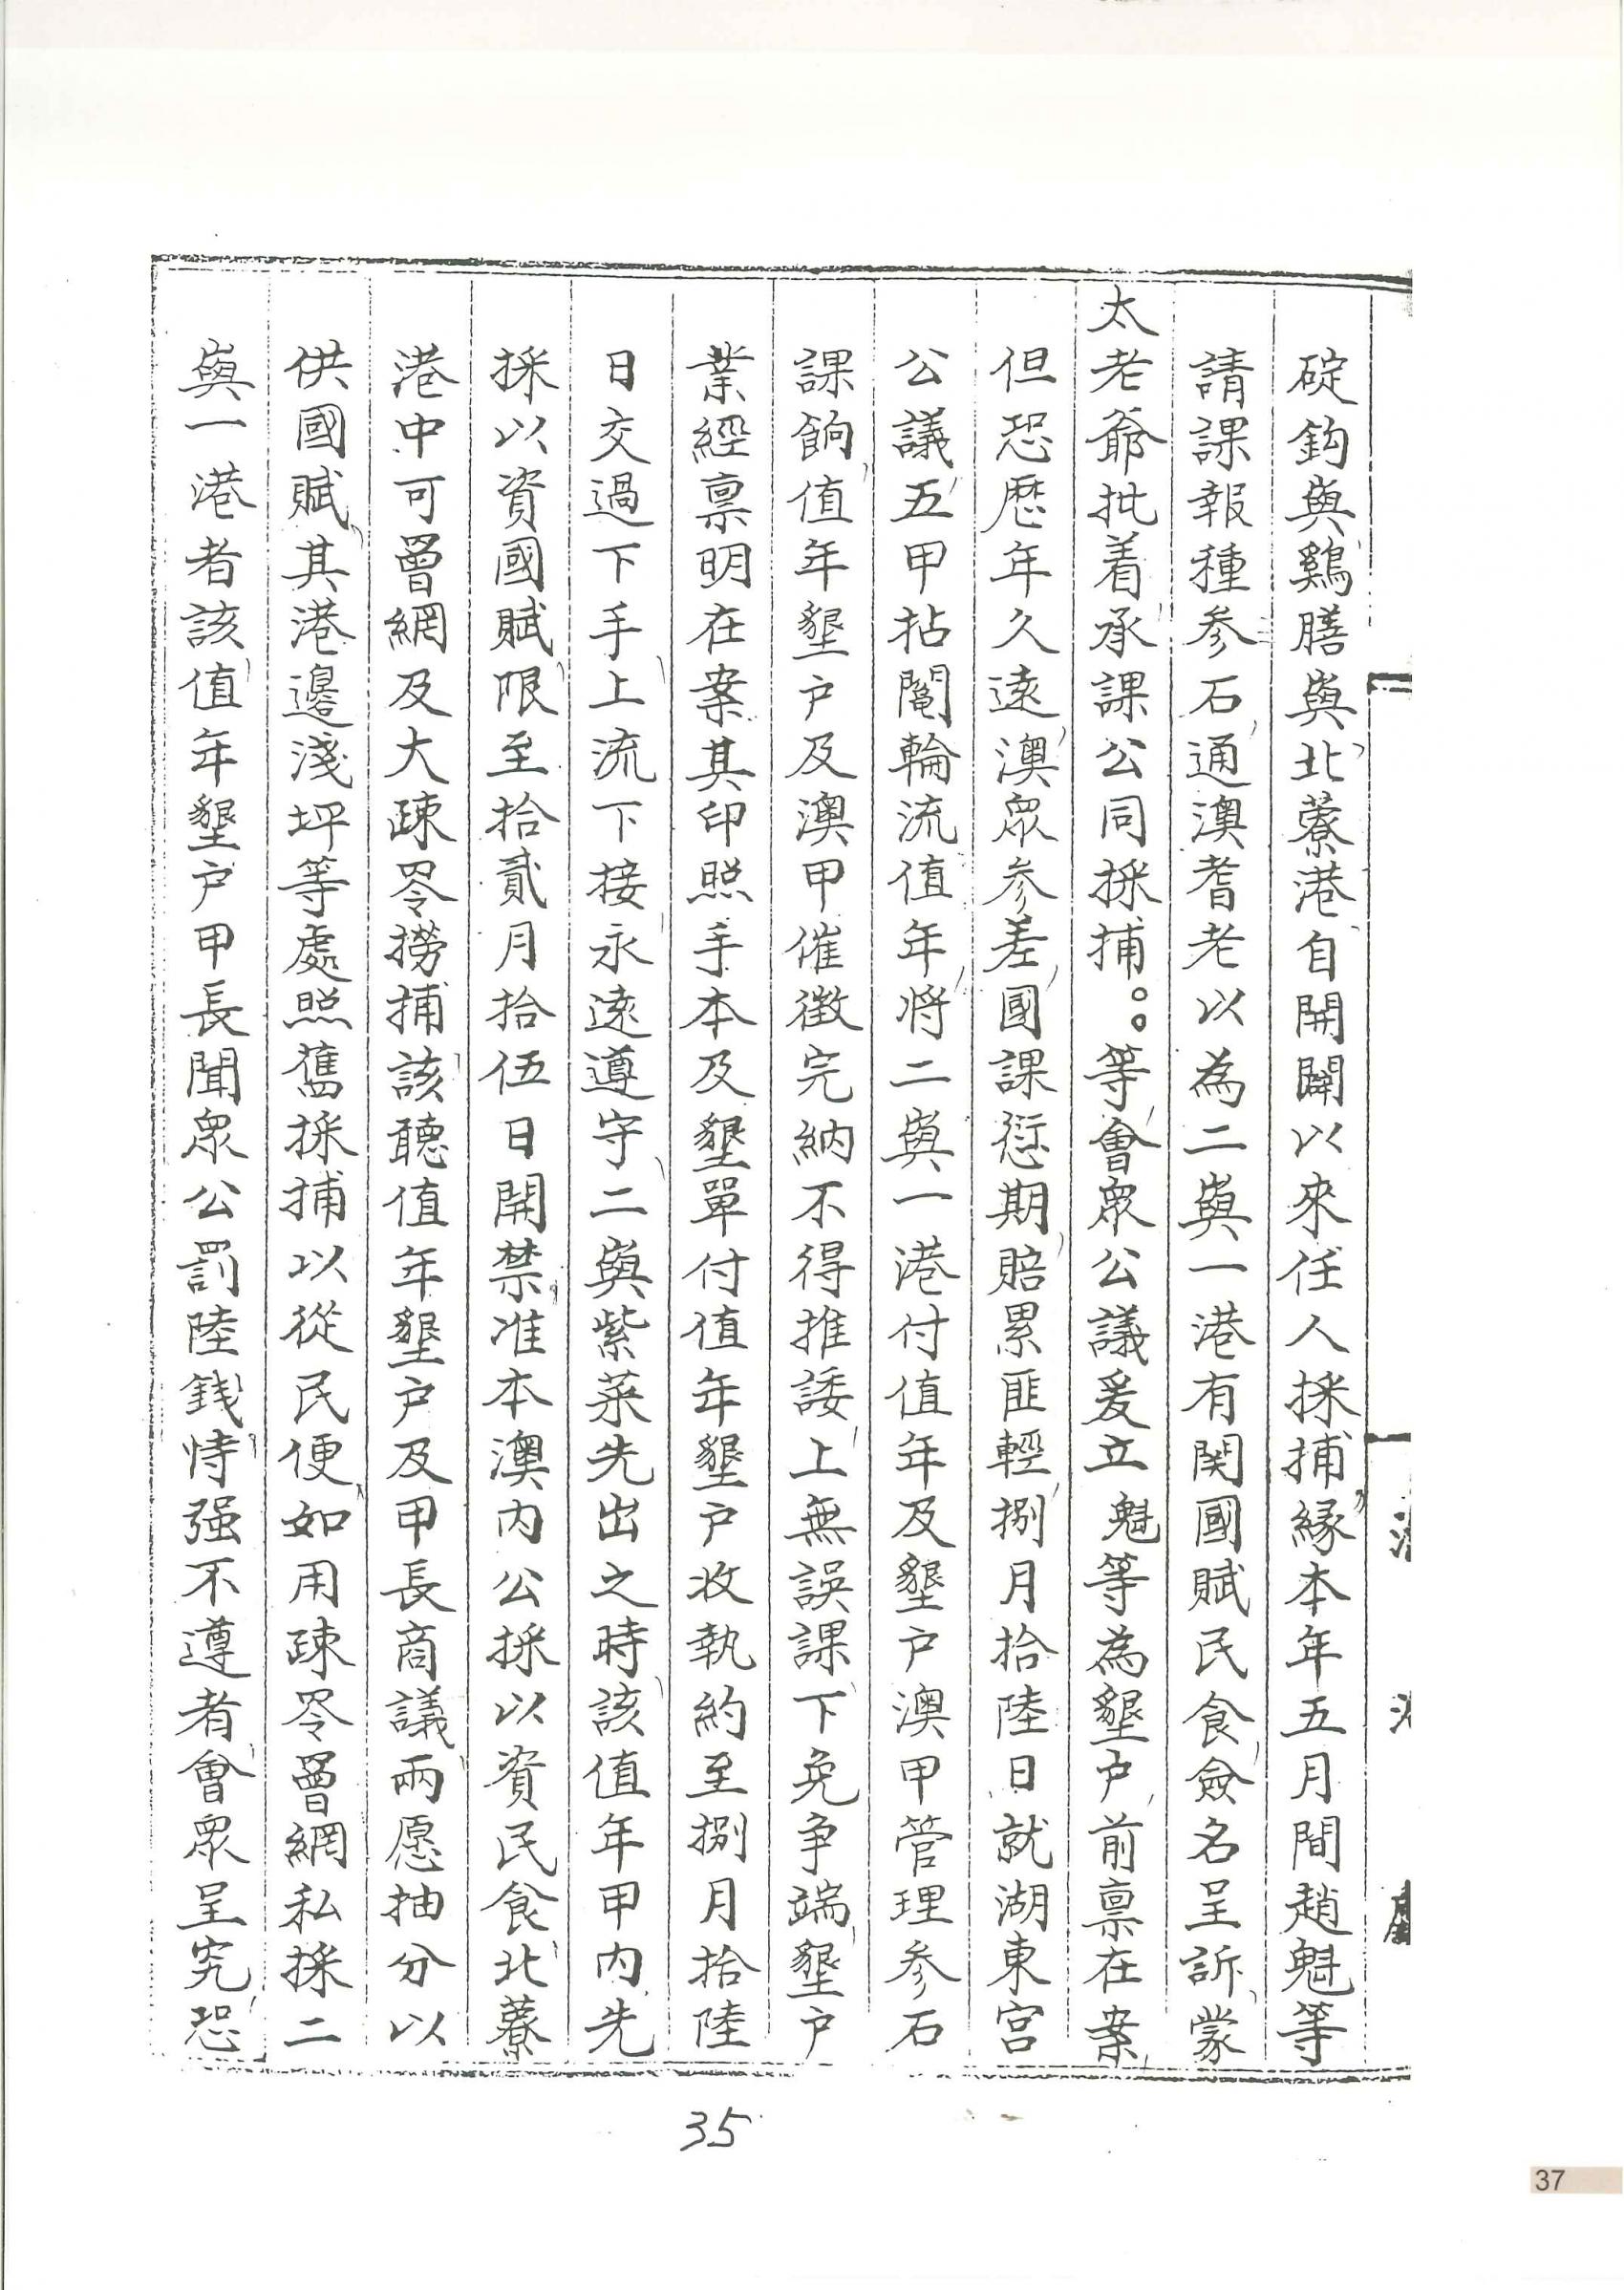 碇鈎與鷄膳與北藔港自開闢以來任人採捕緣本年五月間趙魁等
請課報種參石通澳耆老以為二與一港有関國賦民食僉名呈訴蒙
太老爺批着承課公同採捕。。等會衆公議爰立魁等為墾户前禀在案
但恐歷年久遠澳衆參差國課愆期賠累匪輕捌月拾陸日就湖東宮
公議五甲拈鬮輪流值年將二與一港付值年及墾户澳甲管理參石
課餉值年墾户及澳甲催徵完納不得推諉上無誤課下免争端墾户
業經禀明在案其印照手本及墾單付值年墾户收執約至捌月拾陸
日交過下手上流下接永遠遵守二與紫菜先出之時該值年甲內先
採以資國賦限至拾貳月拾伍日開禁准本澳內公採以資民食北藔
港中可罾網及大疎罾撈捕該聽值年墾户及甲長商議兩愿抽分以
供國賦其港邊淺坪等處照舊採捕以從民便如用疎罾網私採二
與一港者該值年墾户甲長聞衆公罰陸錢恃强不遵者會衆呈究恐
35
37